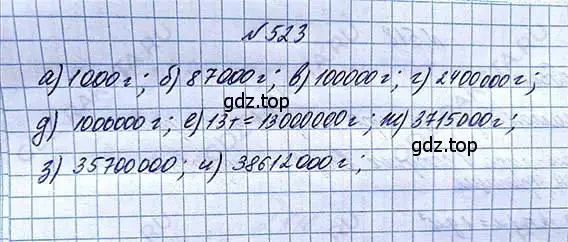 №523
а) 1000г; б) 87000г; в) 100000г; г) 2400000г;
gdz.top
д) 1000000г; е) 13т = 13000000г; ж) 3715000г;
з) 35700000; и) 38612000г;
gdz.top
gdz.top